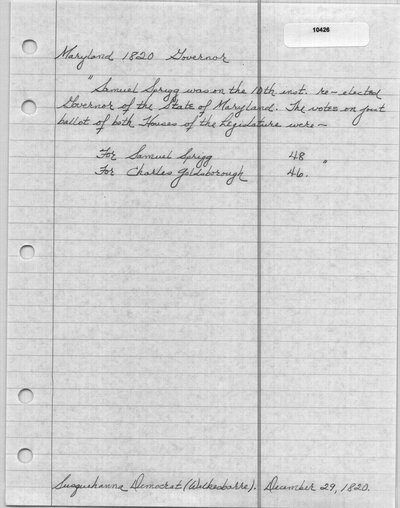 10426
Maryland 1820 Governor
"Samuel Sprigg was on the 10th inst. re-elected
Governor of the State of Maryland. The votes on joint
ballot of both Houses of the Legislature were—
For Samuel Sprigg 48
For Charles Goldsborough 46. "
Susquehanna Democrat (Wilkesbarre). December 29, 1820.